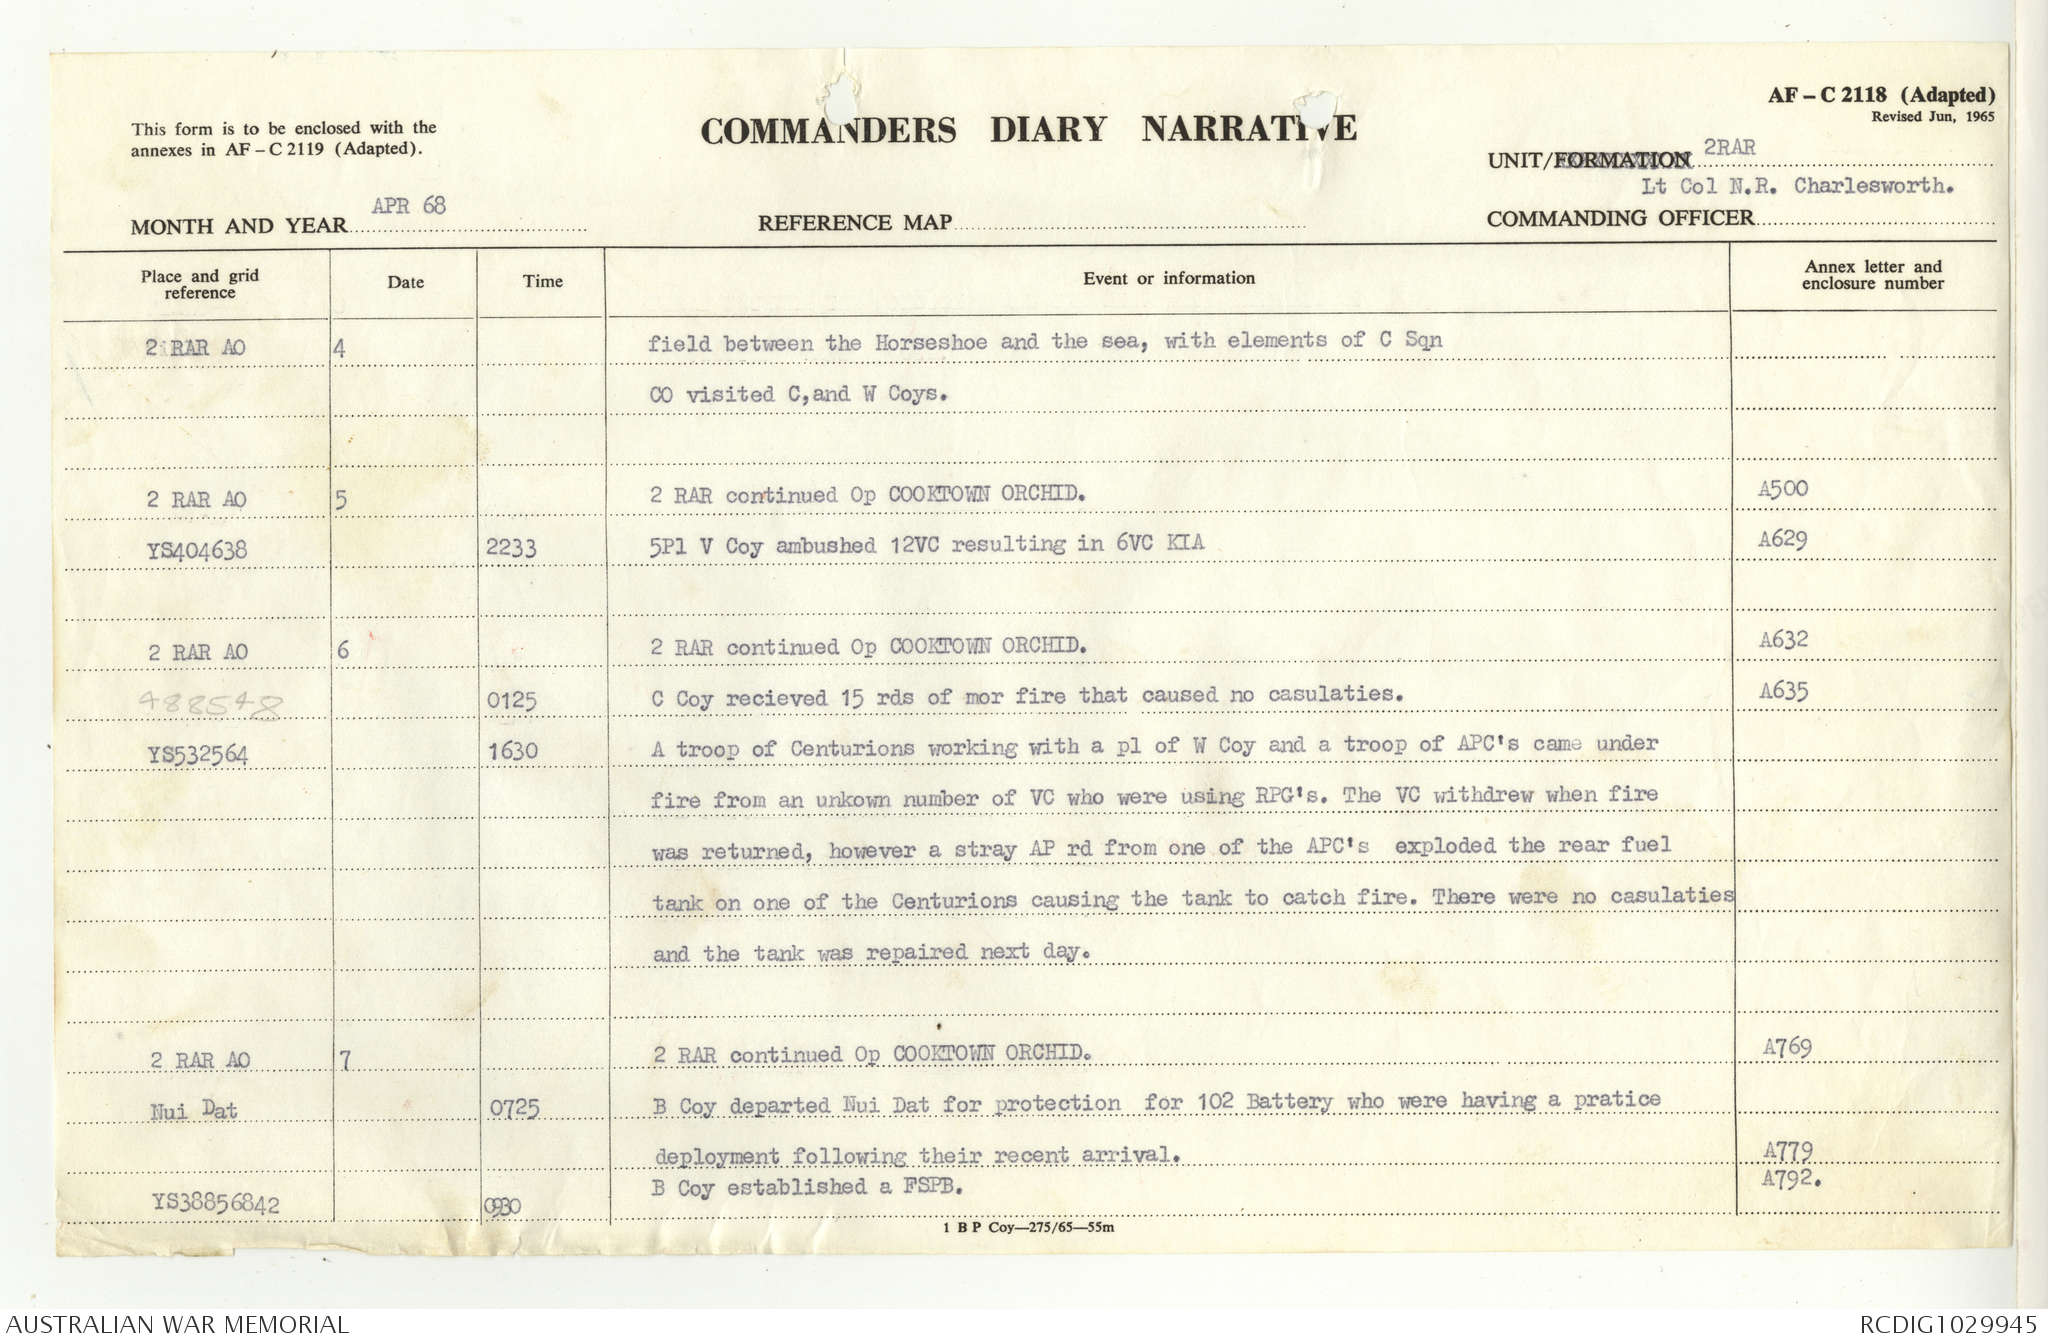 AF – C 2118 (Adapted)
Revised Jun, 1965
This form is to be enclosed with the
annexes in AF – C 2119 (Adapted).
COMMANDERS DIARY NARRATIVE
UNIT/FORMATION 2RAR
Lt Col N.R. Charlesworth.
MONTH AND YEAR APR 68
REFERENCE MAP
COMMANDING OFFICER
Place and grid reference Date Time Event or information Annex letter and enclosure number
2 RAR AO 4 field between the Horseshoe and the sea, with elements of C Sqn
CO visited C,and W Coys.
2 RAR AO 5 2 RAR continued Op COOKTOWN ORCHID. A500
YS404638 2233 5Pl V Coy ambushed 12VC resulting in 6VC KIA A629
2 RAR AO 6 2 RAR continued Op COOKTOWN ORCHID. A632
488548 0125 C Coy recieved 15 rds of mor fire that caused no casulaties. A635
YS532564 1630 A troop of Centurions working with a pl of W Coy and a troop of APC's came under
fire from an unkown number of VC who were using RPG's. The VC withdrew when fire
was returned, however a stray AP rd from one of the APC's exploded the rear fuel
tank on one of the Centurions causing the tank to catch fire. There were no casulaties
and the tank was repaired next day.
2 RAR AO 7 2 RAR continued Op COOKTOWN ORCHID. A769
Nui Dat 0725 B Coy departed Nui Dat for protection for 102 Battery who were having a pratice
deployment following their recent arrival. A779
YS38856842 0930 B Coy established a FSPB. A792.
1 B P Coy—275/65—55m
AUSTRALIAN WAR MEMORIAL
RCDIG1029945